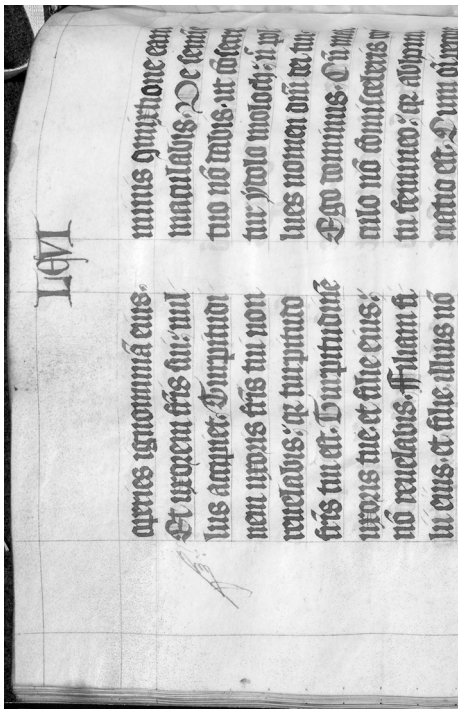 LEVI
aperies ignominiã eius.
Et uxorem fris sui: nul
lus accipiet. Turpitudi
nem uxoris fris tui non
revelabis: qr turpitudo
fris tui est. Turpitudinẽ
uxoris tue. et filie eius:
nõ revelabis. Filiam fi
lii eius. et filie illius nõ
minis cõmixtione eam
maculabis. De semi
tuo nõ dabis. ut cõsecre
tur ydolo moloch: n pol
lues nomen dei tui
Ego dominus. Cũ
culo nõ cõmiscearis
tu femineo: qr abhomi
natio est. Cum oĩ